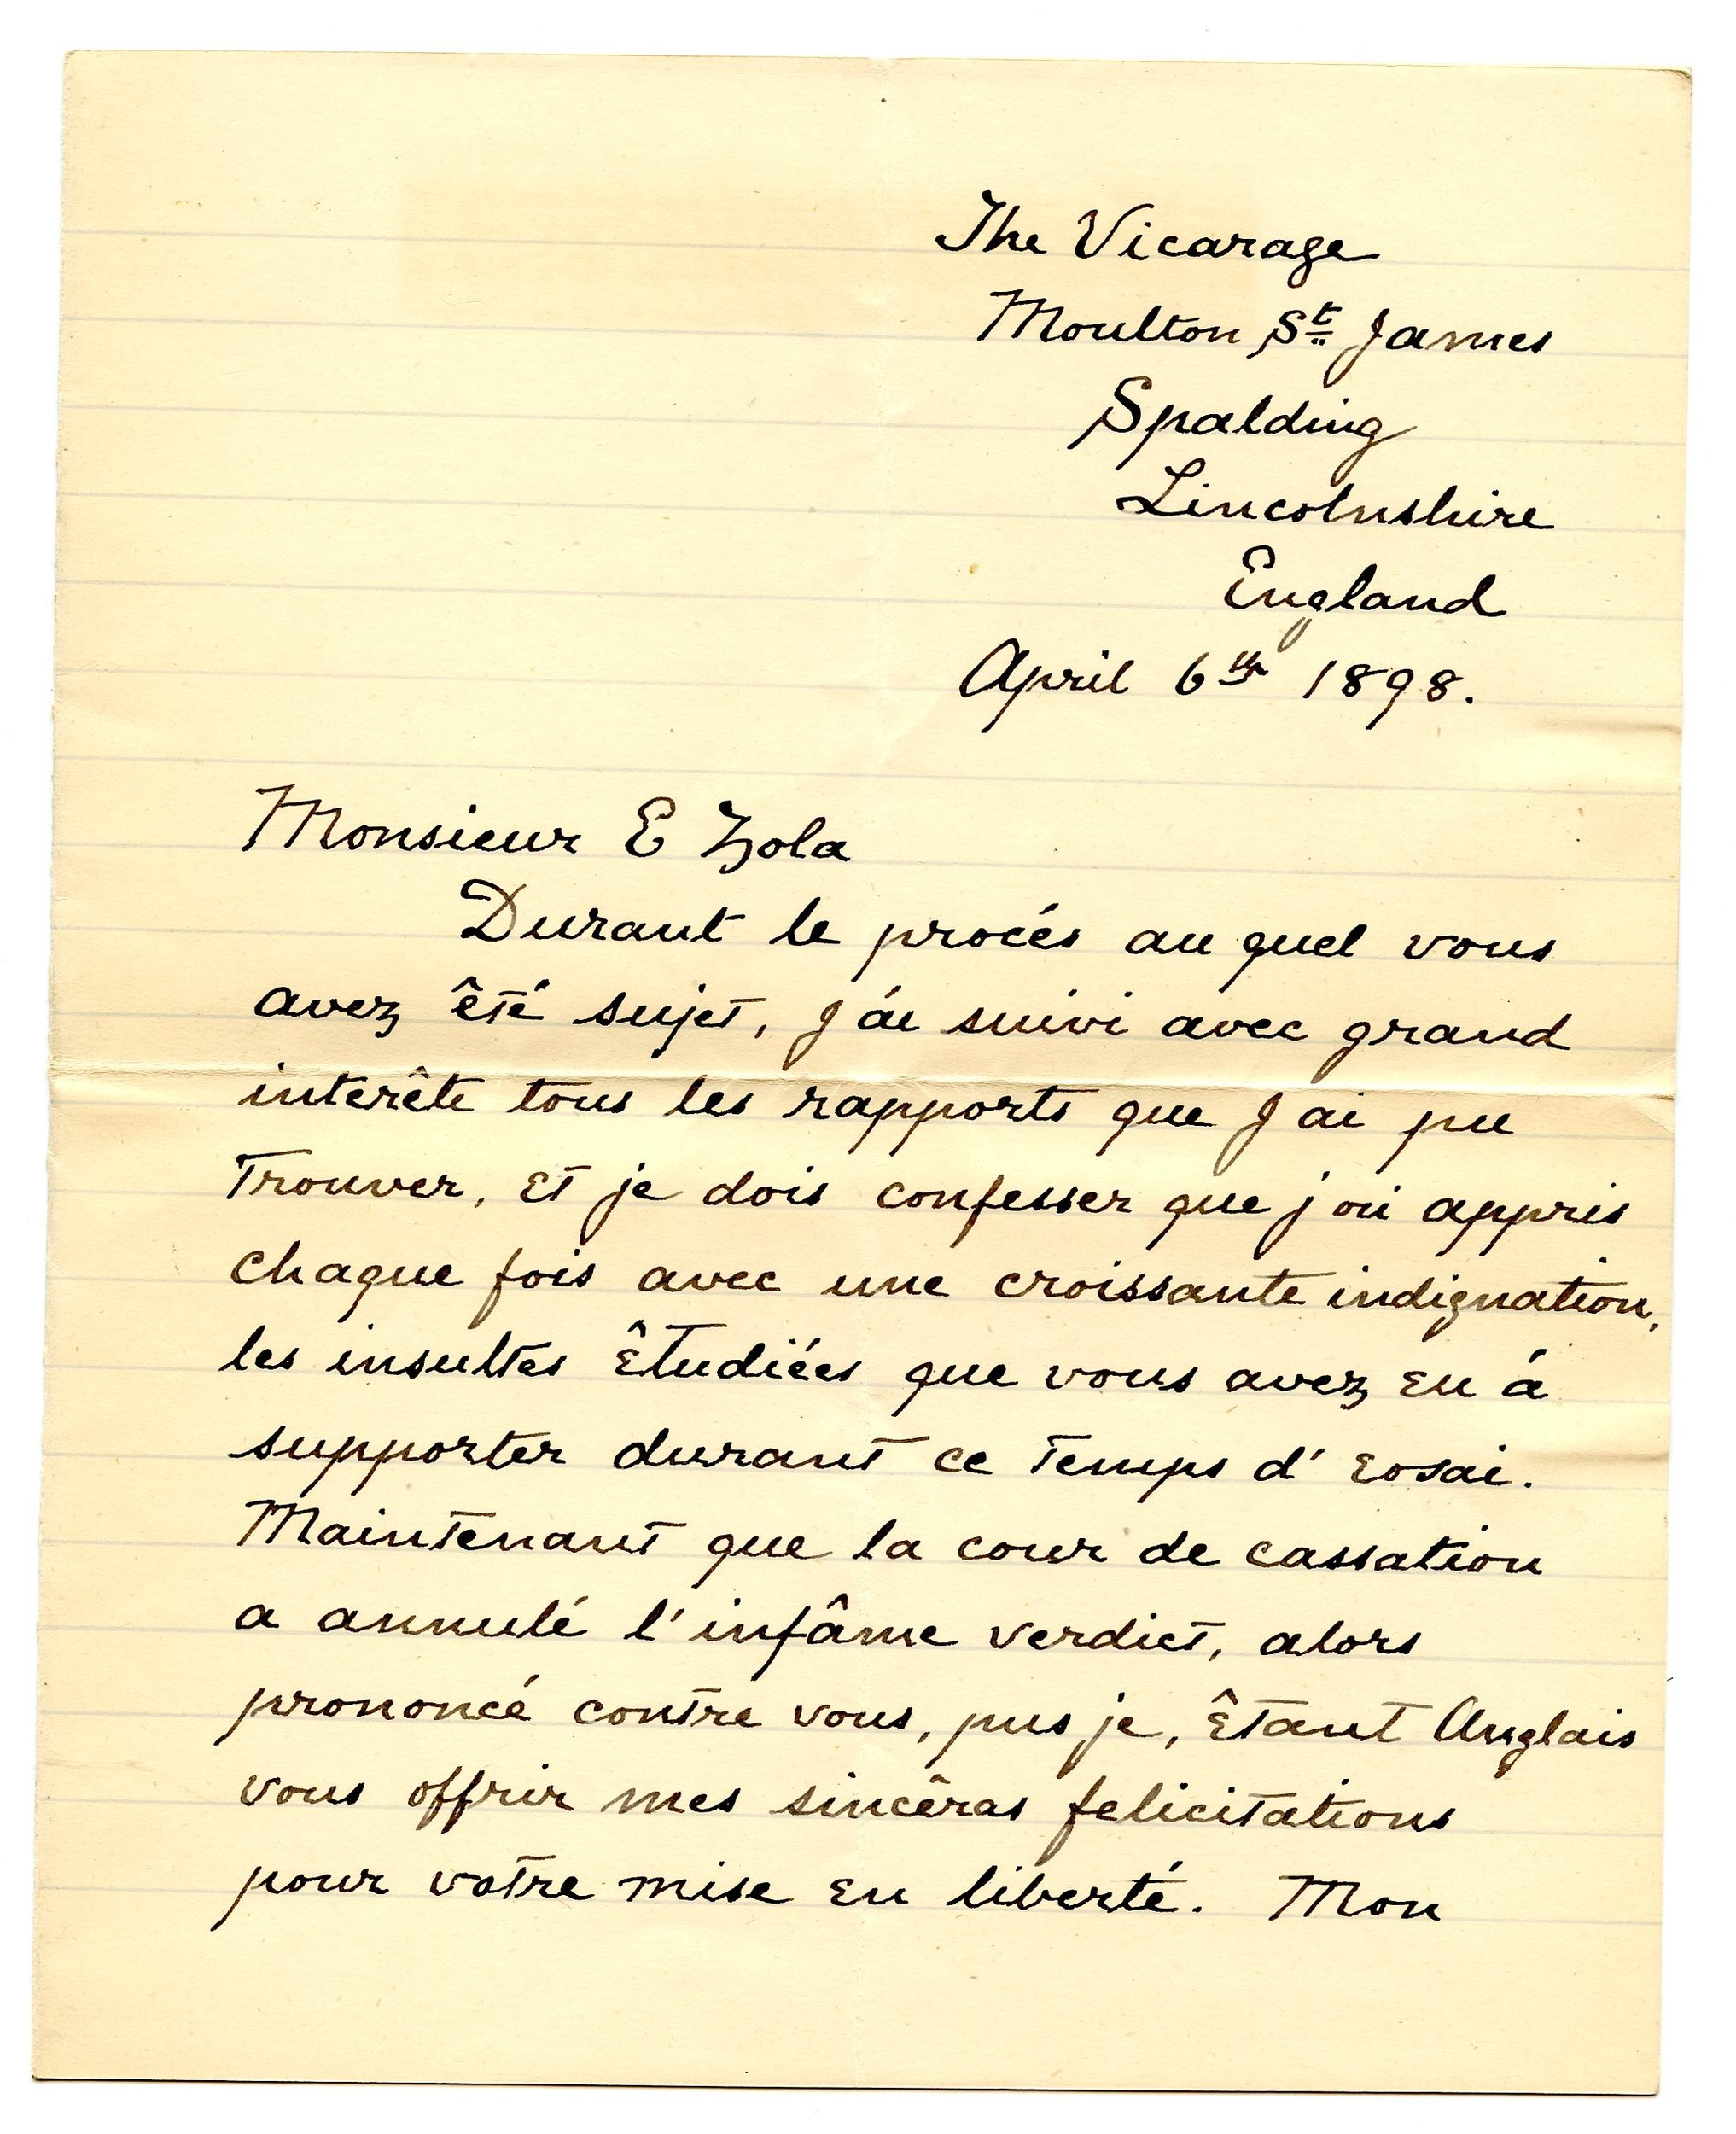 The Vicarage
Moulton St James
Spalding
Lincolnshire
England
April 6th 1898.
Monsieur E Zola
Durant le procés au quel vous
avez êté sujet, J'ai suivi avec grand
interête tous les rapports que J'ai pu
trouver, et je dois confesser que j'ai appris
chaque fois avec une croissante indignation,
les insultes êtudiées que vous avez eu á
supporter durant ce temps d'essai.
Maintenant que la cour de cassation
a annulé l'infâme verdict, alors
prononcé contre vous, puis je, êtant Anglais
vous offrir mes sincêras felicitations
pour votre mise en liberté. Mon